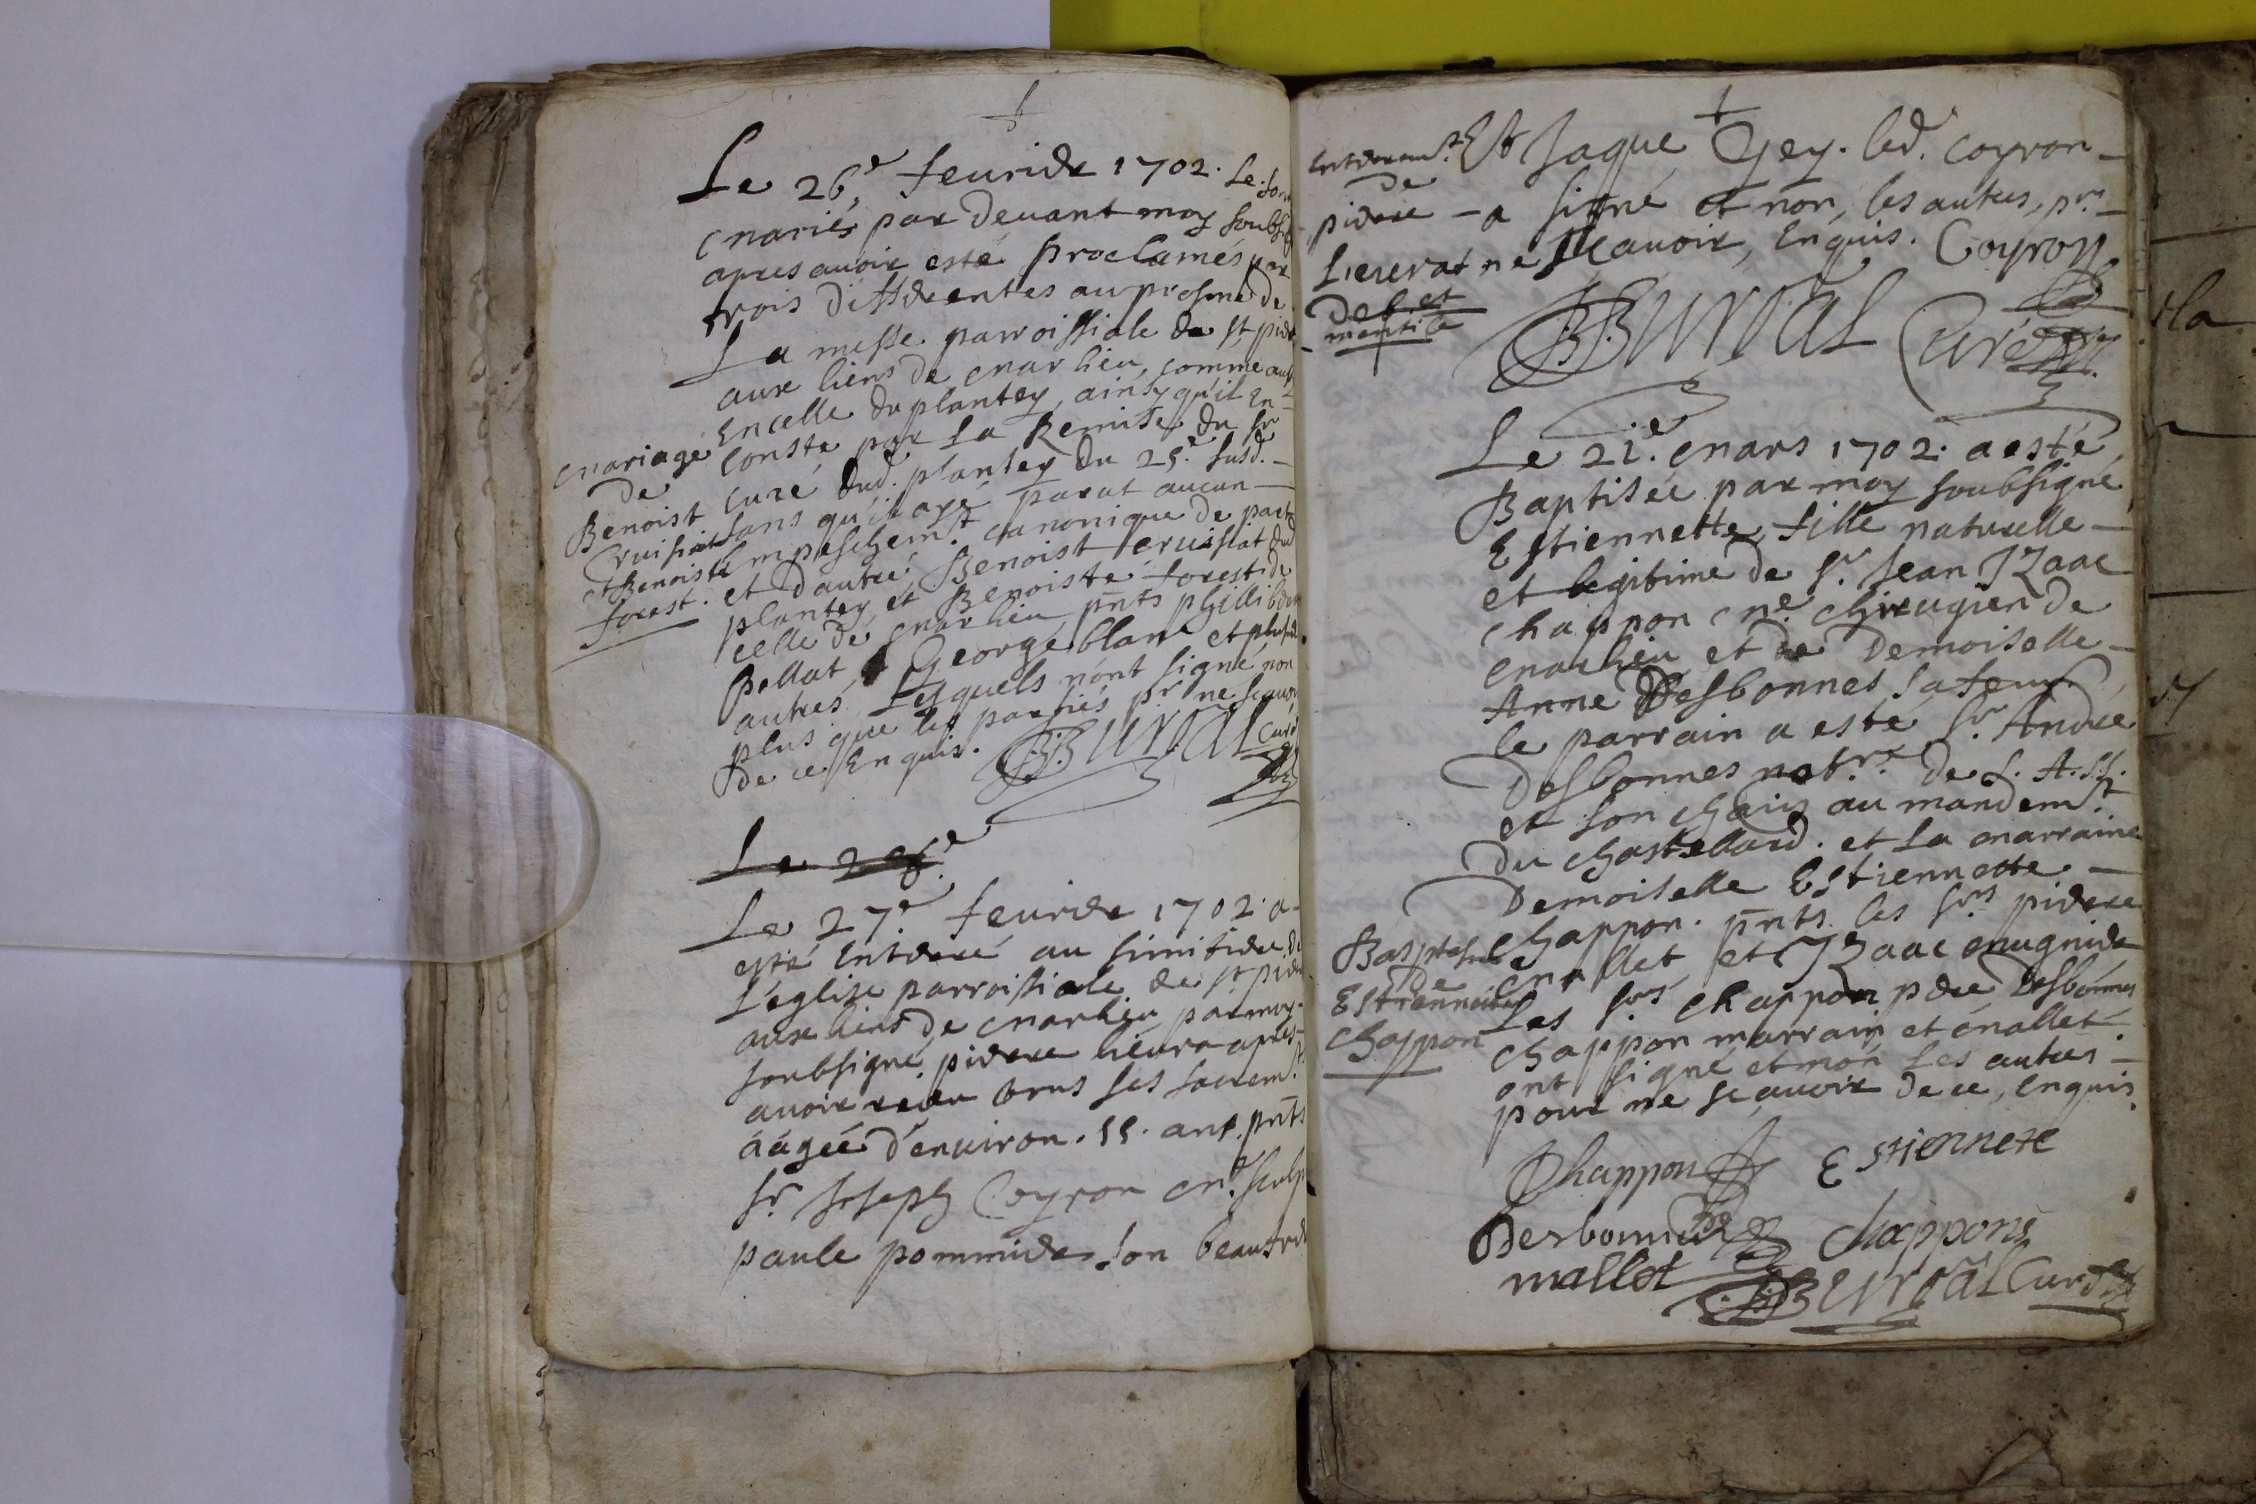 Le 26e feurier 1702. Se sont
mariés par deuant moy soubs
apres auoir esté proclamés par
trois differentes au prosne de
La messe parroissiale de st pier
aux liens de marlieu, comme aussy
En celle du plantey, ainsy qu'il En
Conste par La Remise du sr
Curé dud. plantey du 25e susd.
sans qu'il aye parut aucun
Empeschemt. canonique de part
et d'autre, Benoist Cruisiat dud
plantey, et Benoiste forest de
celle de marlieu pnts phillibert
pellat, George blanc et plusieurs
autres Lesquels n'ont signé non
plus que les parties pr ne scauoir
de ce Enquis. BBurtal Curé
mariage
de
Benoist
Cruisiat
et Benoiste
forest.
Le 26e
Le 27e feurier 1702. a
esté Enterré au simitiere de
L'église parroissiale de st pierre
aux liens de marlieu, par moy
soubsigné, pierre lieura apres
auoir receu tous ses sacremts.
aagée d'enuiron. 55. ans. pnts
sr Joseph Coyron me. sculp
paule pommier son beaufre
Et Jaque Gey. led. Coyron
a signé et non, les autres, pr
ne sçauoir, Enquis. Coyron
BBurtal Curé
Enterremt.
de
pierre
Lieurat
Del et
mentile
Le 21e. mars 1702. a esté
Baptisée par moy soubsigné
Estiennette, fille naturelle
et legitime de sr. Jean Izaac
chappon me. chirugien de
marlieu et de Demoiselle
Anne Desbonnes sa femme
le parrain a esté sr. Andre
Desbonnes notre. De S. A. S.
et son chatelain au mandemt
du chastelard. et la marraine
Demoiselle Estiennette
Chappon. pnts. les srs pierre
mallet et Izaac mugnier
Les srs chappon pere Desbonnes
chappon marrain et mallet
ont signé et non les autres
pour ne sçauoir de ce, enquis.
Baptesme
de
Estiennette
chappon
Chappon Estiennete
Desbonnes chappon
mallet BBurtal Curé